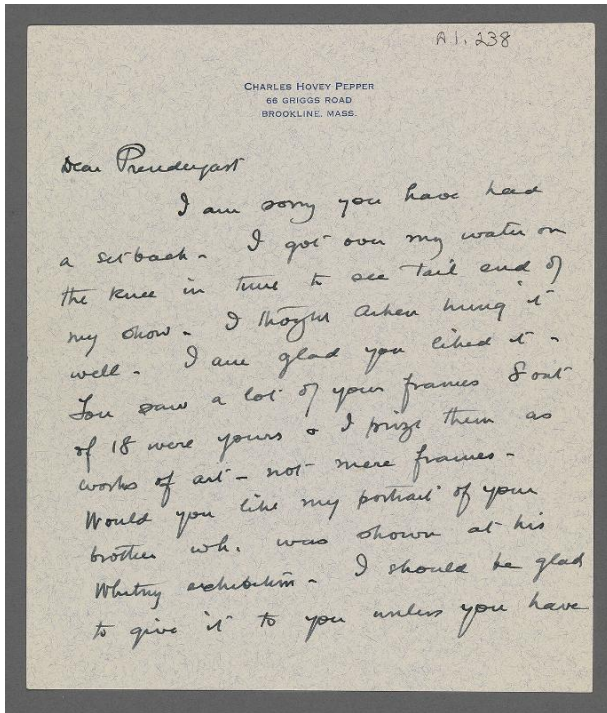 A1. 238
CHARLES HOVEY PEPPER
66 GRIGGS ROAD
BROOKLINE, MASS.
Dear Prendergast
I am sorry you have had
a setback - I got over my water on
the knee in time to see tail end of
my show - I thought Aiken hung it
well - I am glad you liked it -
You saw a lot of your frames 8 out
of 18 were yours & I prize them as
works of art - not mere frames -
Would you like my portrait of your
brother wh. was shown at his
Whitney exhibition - I should be glad
to give it to you unless you have